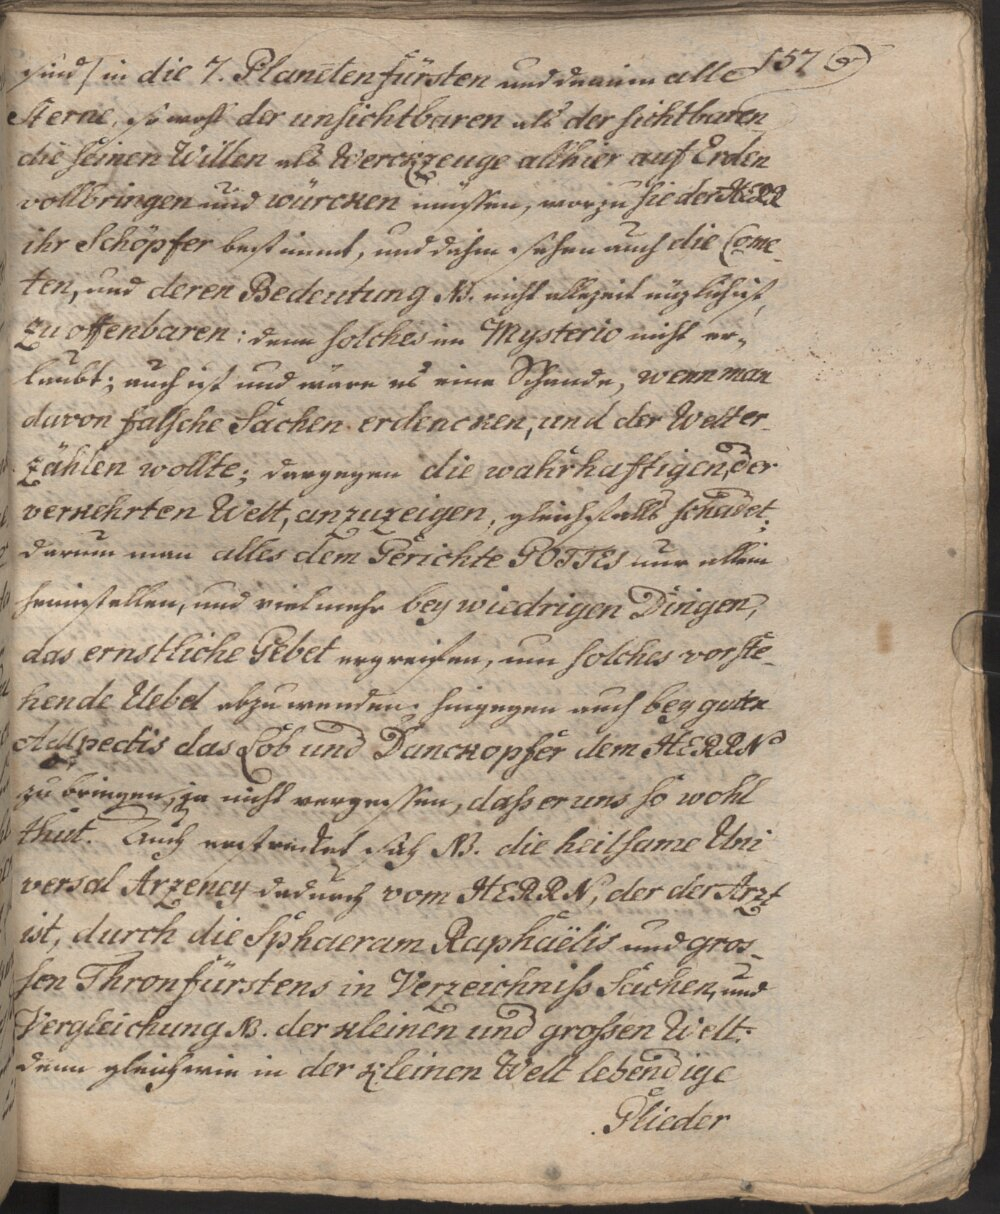 157
sind/ in die 7. Planetenfürsten und darinn alle
Sterne, so wohl der unsichtbaren als der sichtbaren
die seinen Willen als Werckzeuge allhier auf Erden
vollbringen und würcken müssen, worzu sie der HERR
ihr Schöpfer bestimmt, und dahin sehen auch die Come-
ten, und deren Bedeutung NB. nicht allezeit nüzlich ist,
zu offenbaren: denn solches im Mysterio nicht er-
laubt; auch ist und wäre es eine Schande, wenn man
davon falsche Sachen erdencken, und der Welt er-
zählen wollte; dargegen die wahrhaftigen, der
verkehrten Welt, anzuzeigen, gleichfalls schadet;
darum man alles dem Gerichte GOTTES nur allein
heimstellen, und vielmehr bey wiedrigen Dingen,
das ernstliche Gebet ergreifen, um solches vorste-
hende Uebel abzuwenden: hingegen auch bey guten
Adspectis das Lob und Danckopfer dem HERRN
zu bringen, ja nicht vergessen, dass er uns so wohl
thut. Auch erstrecket sich NB. die heilsame Uni-
versal Arzeney dadurch vom HERRN, der der Arzt
ist, durch die Sphaeram Raphaëlis und gros-
sen Thronfürstens in Verzeichniss Sachen, und
Vergleichung NB. der kleinen und grossen Welt:
denn gleichwie in der kleinen Welt lebendige
Glieder